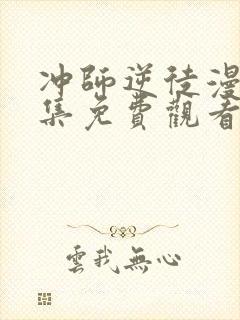 冲師逆徒漫
集免費觀看
雲我無心